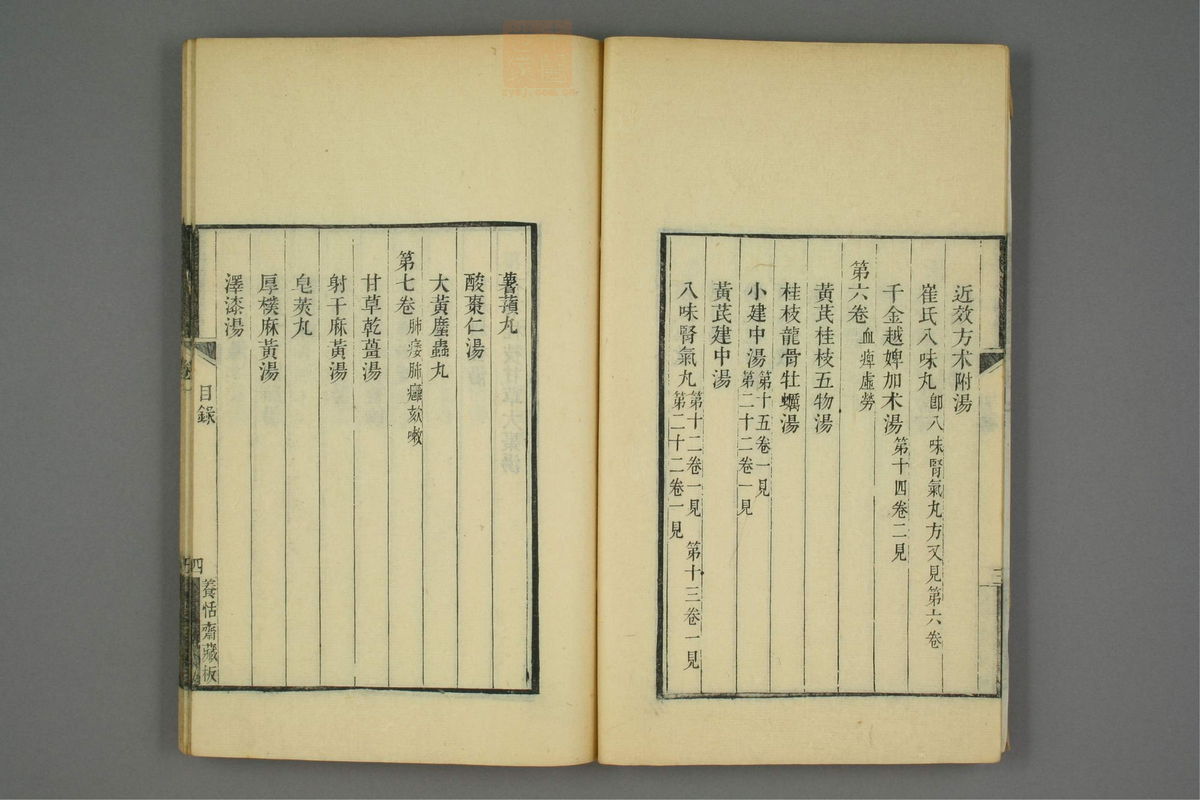 近效方术附湯
崔氏八味丸 卽八味腎氣丸方又見第六卷
千金越婢加术湯 第十四卷二見
第六卷 血痺虛勞
黃芪桂枝五物湯
桂枝龍骨牡蠣湯
小建中湯 第十五卷一見 第二十二卷一見
黃芪建中湯
八味腎氣丸 第十二卷一見 第十三卷一見 第二十二卷一見
三
薯蕷丸
酸棗仁湯
大黃䗪蟲丸
第七卷 肺痿肺癰欬嗽
甘草乾薑湯
射干麻黃湯
皂莢丸
厚樸麻黃湯
澤漆湯
目錄
四
養恬齋藏板